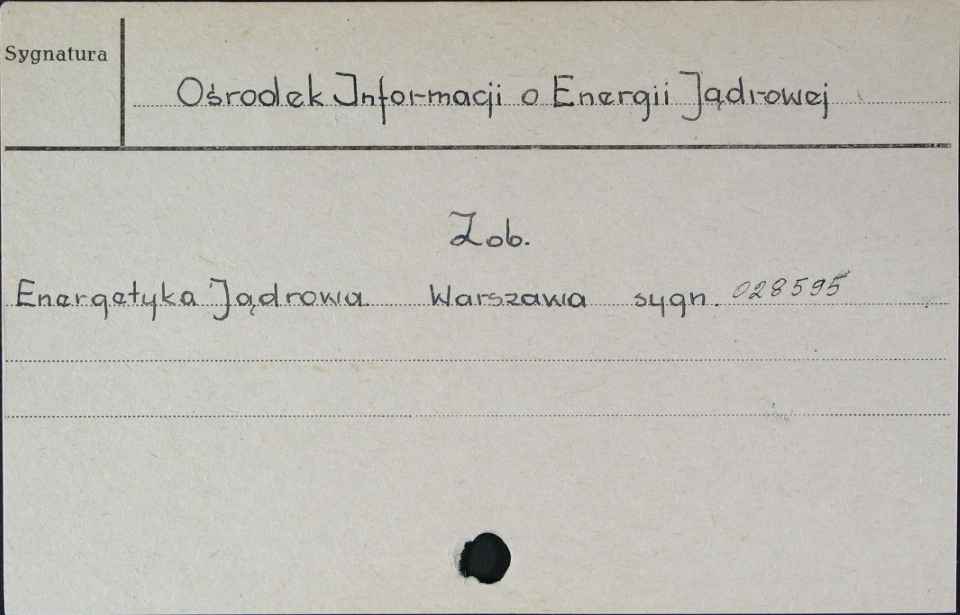 Sygnatura
Ośrodek Informacji o Energii Jądrowej
Zob.
Energetyka Jądrowa Warszawa sygn. 028595